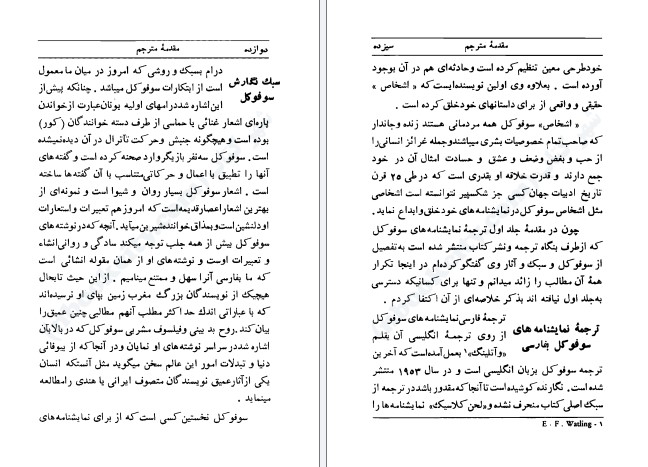 دوازده
مقدمهٔ مترجم
سبك نگارش
سوفوكل
درام بسبك و روشی كه امروز در میان ما معمول
است از ابتكارات سوفوكل میباشد . چنانكه پیش از
این اشاره شد درامهای اولیه یونان عبارت از خواندن
پاره‌ای اشعار غنائی یا حماسی از طرف دسته خوانندگان (كور)
بوده است و هیچگونه جنبش و حركت تآترال در آن دیده نمیشده
است . سوفوكل سه‌نفر بازیگر وارد صحنه كرده است و گفته‌های
آنها را تطبیق با اعمال و حركاتی متناسب با آن گفته‌ها ساخته
است . اشعار سوفوكل بسیار روان و شیوا است و نمونه‌ای از
بهترین اشعار اعصار قدیمه است كه امروز هم تعبیرات و استعارات
او دلنشین است و بمذاق خواننده شیرین میآید. آنچه كه در نوشته های
سوفوكل بیش از همه جلب توجه میكند سادگی و روانی انشاء
و تعبیرات اوست و نوشته‌های او از همان مقوله انشائی است
كه ما بفارسی آنرا سهل و ممتنع مینامیم . از این حیث تا بحال
هیچیك از نویسندگان بزرگ مغرب زمین بپای او نرسیده‌اند
كه با عباراتی اندك حد اكثر مطلب آنهم مطالبی چنین عمیق را
بیان كند . روح بدبینی و فیلسوف مشربی سوفوكل كه در بالا بآن
اشاره شد در سراسر نوشته های او نمایان و در آنجا كه از بیوفائی
دنیا و تبدلات امور این عالم سخن میگوید مثل آنستكه انسان
یكی از آثار عمیق نویسندگان متصوف ایرانی یا هندی را مطالعه
مینماید .
سوفوكل نخستین كسی است كه از برای نمایشنامه های
مقدمهٔ مترجم
سیزده
خود طرحی معین تنظیم كرده است و حادثه‌ای هم در آن بوجود
آورده است . بعلاوه وی اولین نویسنده ایست كه « اشخاص »
حقیقی و واقعی از برای داستانهای خود خلق كرده است .
« اشخاص» سوفوكل همه مردمانی هستند زنده و جاندار
كه صاحب تمام خصوصیات بشری میباشند و جمله غرائز انسانی را
از حب و بغض و ضعف و عشق و حسادت امثال آن در خود
جمع دارند و قدرت خلاقه او بقدری است كه در طی ۲۵ قرن
تاریخ ادبیات جهان كسی جز شكسپیر نتوانسته است اشخاصی
مثل اشخاص سوفوكل در نمایشنامه های خود خلق و ابداع نماید.
چون در مقدمهٔ جلد اول ترجمهٔ نمایشنامه های سوفوكل
كه از طرف بنگاه ترجمه و نشر كتاب منتشر شده است به تفصیل
از سوفوكل و سبك و آثار وی گفتگو كرده‌ام در اینجا تكرار
همهٔ آن مطالب را زائد میدانم و تنها برای كسانیكه دسترسی
به جلد اول نیافته اند بذكر خلاصه‌ای از آن اكتفا كردم .
ترجمهٔ نمایشنامه های
سوفوكل بفارسی
ترجمهٔ فارسی نمایشنامه های سوفوكل
از روی ترجمهٔ انگلیسی آن بقلم
«واتلینگ» ۱ بعمل آمده است كه آخرین
ترجمه سوفوكل بزبان انگلیسی است و در سال ۱۹۵۳ منتشر
شده است. نگارنده كوشیده است تا آنجا كه مقدور باشد در ترجمه از
سبك اصلی كتاب منحرف نشده و «لحن كلاسیك» نمایشنامه ها را
E . F . Watling - ۱